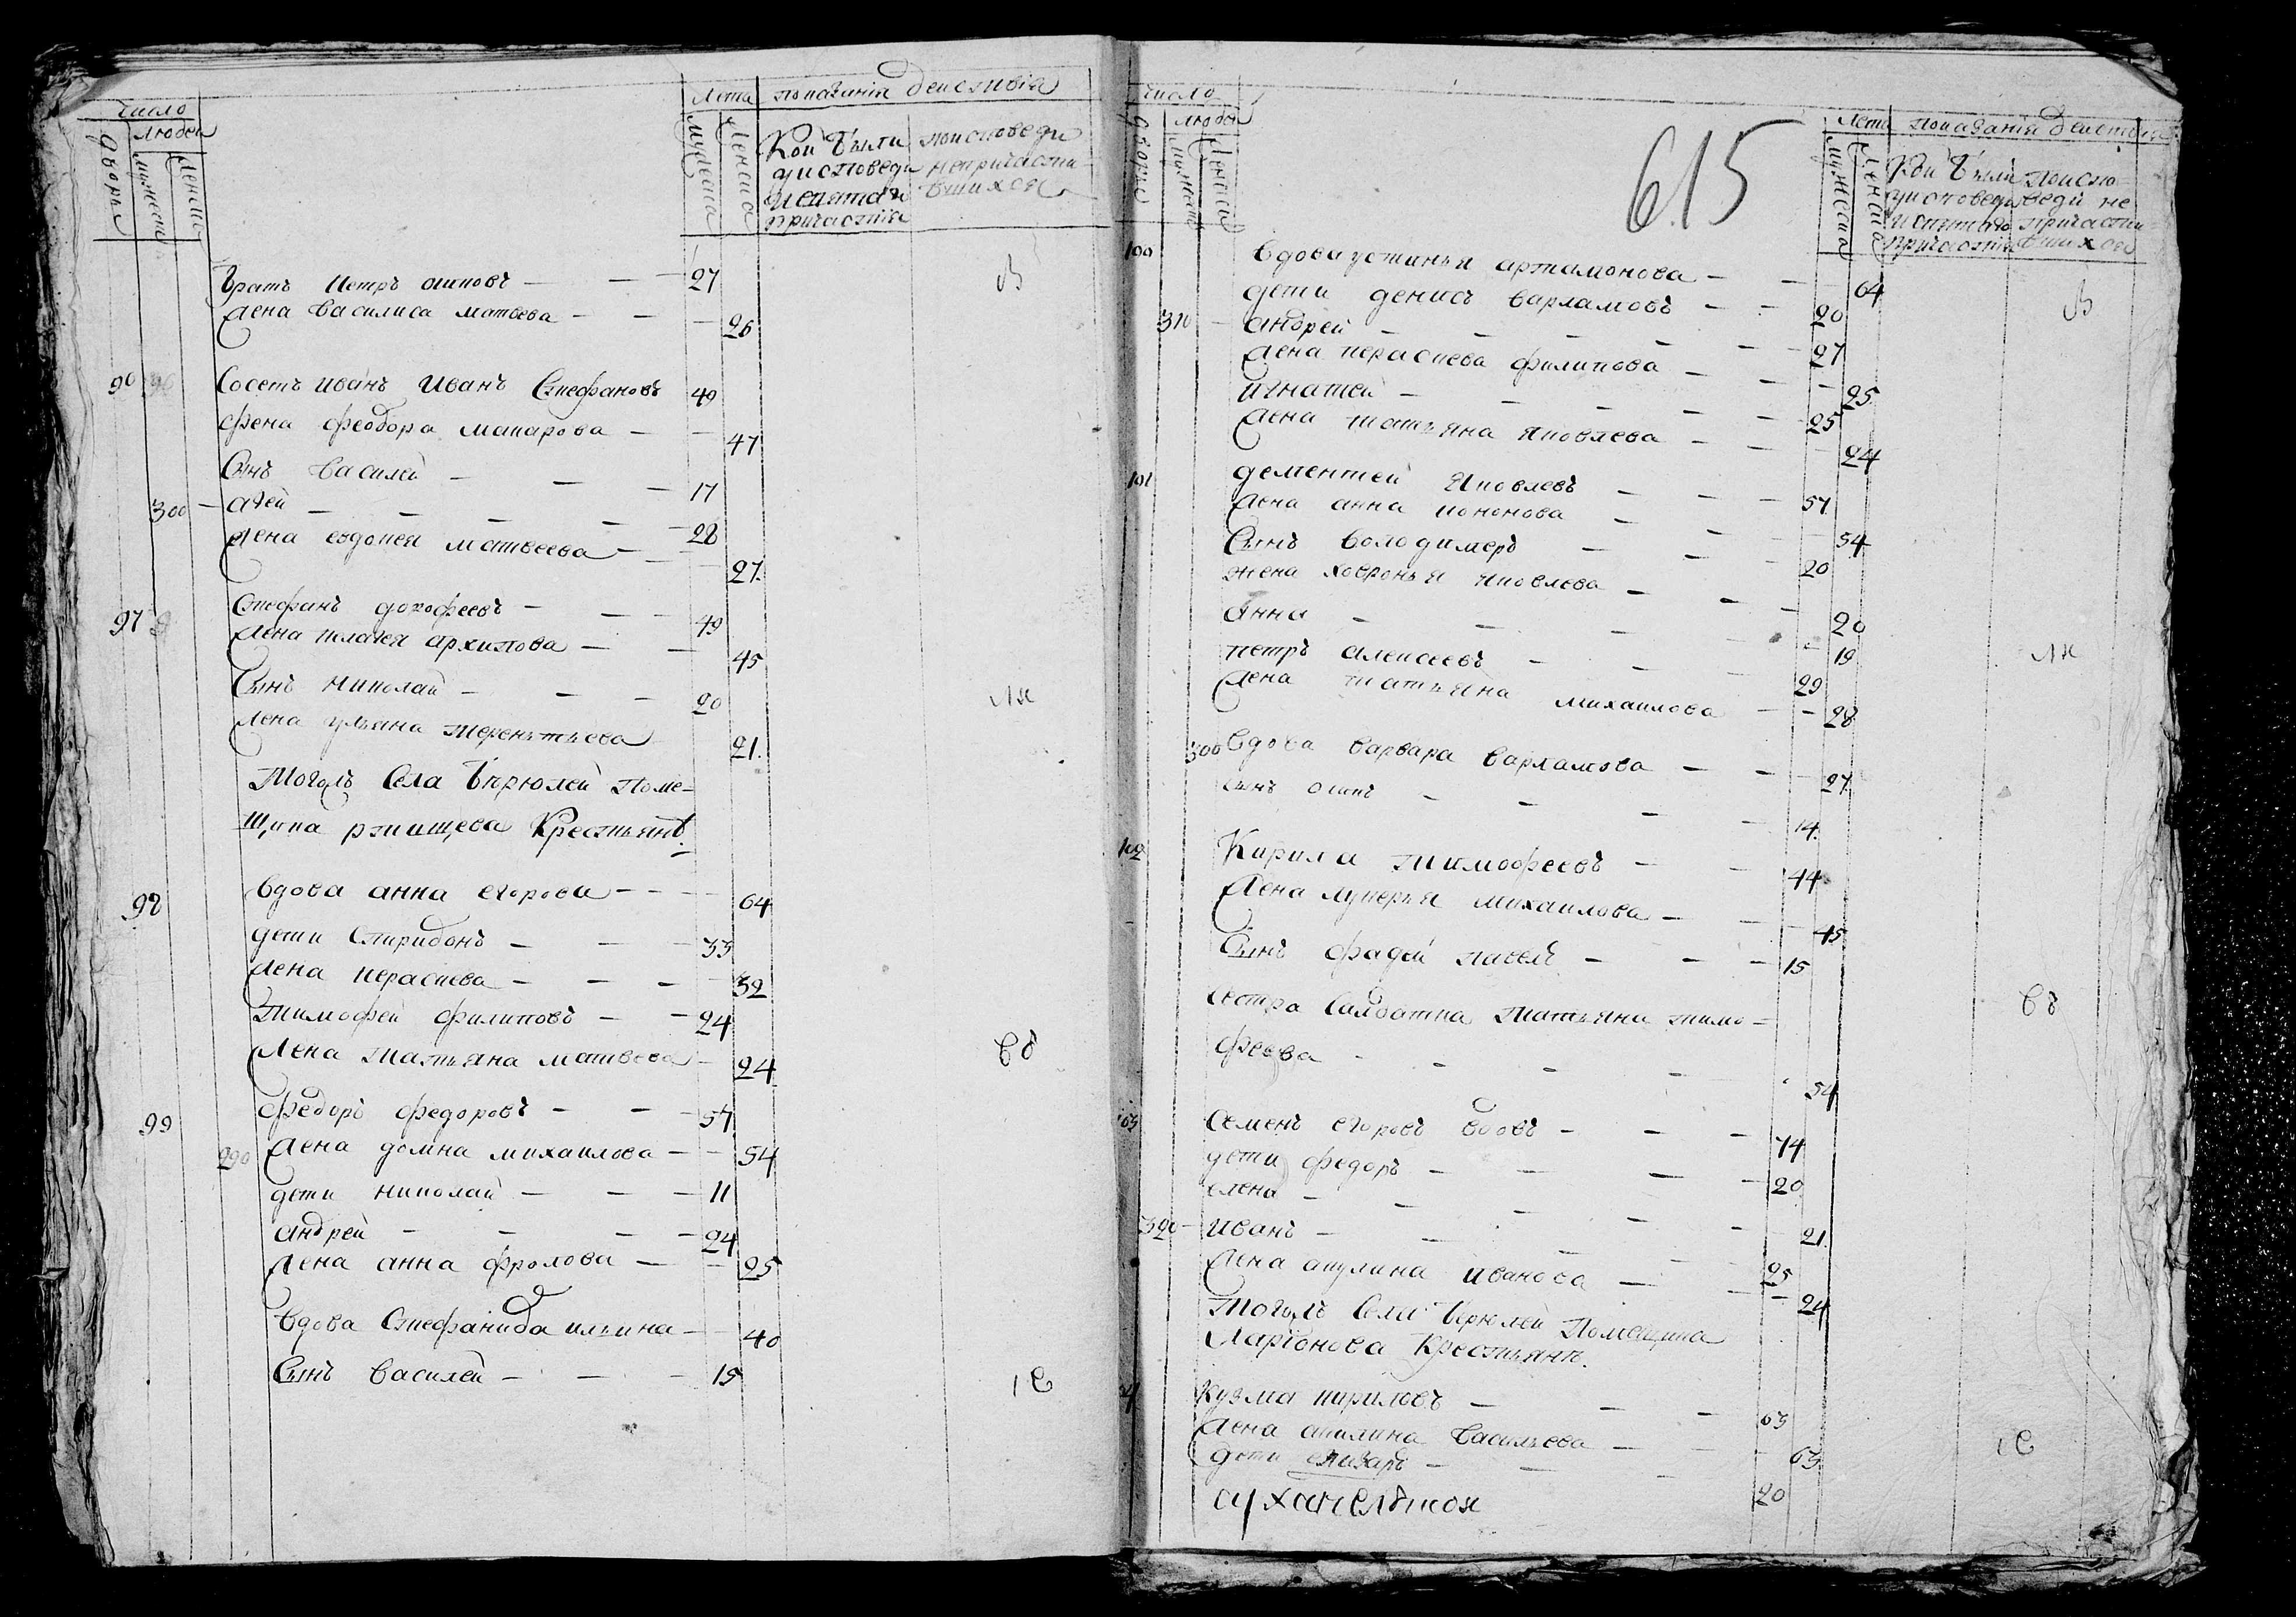 число
Лета показанiя действiя
дворы
людей
мужеска
женска
мужеска
женска
Кои были
у исповеди
и святаго
причастiя
по исповеди
не причасти-
вшихся
братъ Петръ осиповъ — — 27
жена Василиса матвеева — — 26
96 Сосетъ иванъ Иванъ Стефановъ 49
жена феодора макарова — 47
Сынъ Василей — — 17
300 — агей — — — 28
жена евдокея матвеева — 27.
97 Стефанъ дорофеевъ — — 49
жена пелагея архипова — — 45
Сынъ николай — — — 20
жена ульяна терентьева 21.
Тогожъ Села бирюлей Поме-
щика ртищева Крестьянъ.
98 вдова анна егорова — — 64
дети Спиридонъ — — — 33
жена парасчева — — — 32
тимофей филиповъ — — 24
жена татьяна матвеева — 24
99 федоръ федоровъ — — — 57
290 жена домна михаилова — — 54
дети николай — — — 11
андрей — — — — 24
жена анна фролова — 25
вдова Стефанида ильина — 40
Сынъ василей — — — 15
число
615
Лета показанiя действiя
дворы
людей
мужеска
женска
мужеска
женска
Кои были
у исповеди
и святаго
причастiя
по испо-
веди не
причасти-
вшихся
100 вдова устинья артамонова — — 64
дети денисъ варламовъ — — 20
310 — андрей — — — — 27
жена парасчева филипова — — 25
игнатей — — — — 25
жена татьяна яковлева — — 24
101 дементей яковлевъ — — — 57
жена анна кононова — — 54
Сынъ володимеръ — — 20
жена ховронья яковлева — — 20
анна — — — — 19
петръ алексеевъ — — — 29
жена татьяна михаилова — — 28
300 вдова варвара варламова — — 27.
сынъ осипъ — — — — 14.
102 Кирила тимофеевъ — — 44
жена лукерья михаилова — — 45
Сынъ фадей павелъ — — — 15
сестра Салдатка татьяна тимо-
феева — — — — 54
103 Семенъ егоровъ вдовъ — — — 74
дети федоръ — — — — 20
елена — — — — 21.
320 — иванъ — — — — 25
жена акулина иванова — — 24
Тогожъ Села бирюлей Помещика
Ларiонова Крестьянъ.
Кузма кириловъ — — — 63
жена акилина васильева — — 63.
дети елизаръ — — — 20